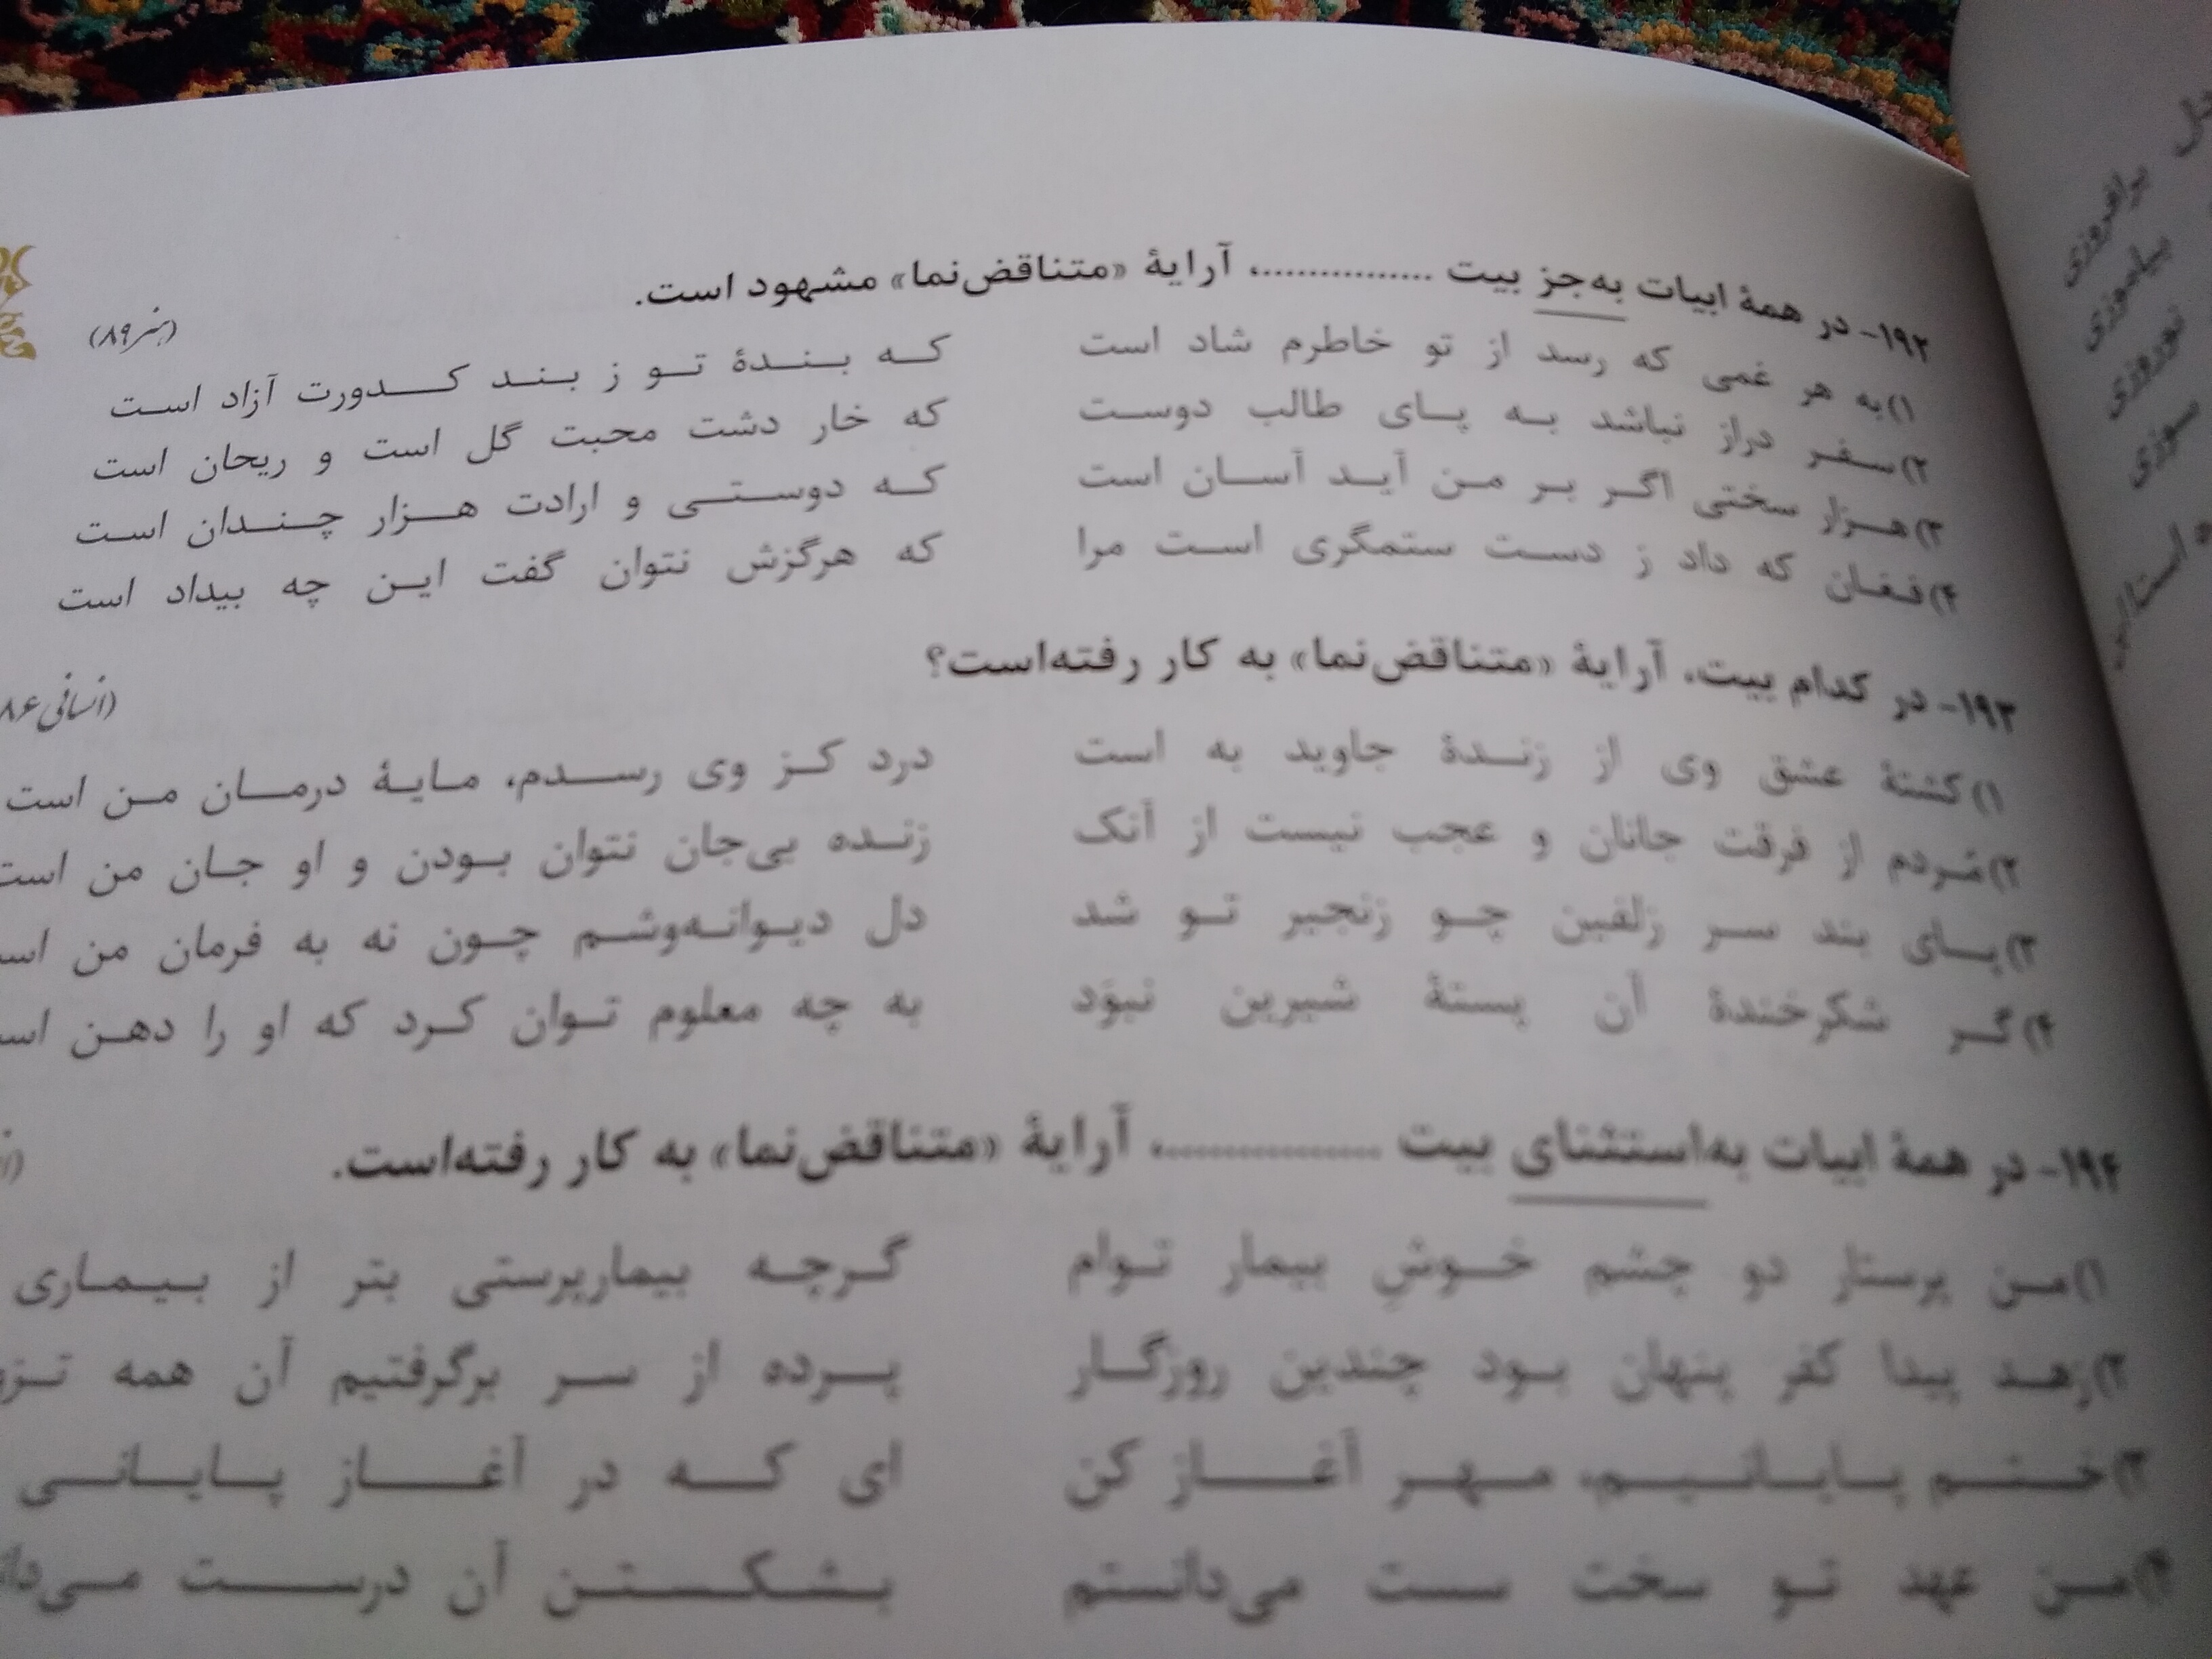 ۱۹۲- در همهٔ ابیات به‌جز بیت ................، آرایهٔ «متناقض‌نما» مشهود است. (هنر ۸۹)
۱) به هر غمی که رسد از تو خاطرم شاد است که بندهٔ تو ز بند کدورت آزاد است
۲) سفر دراز نباشد به پای طالب دوست که خار دشت محبت گل است و ریحان است
۳) هزار سختی اگر بر من آید آسان است که دوستی و ارادت هزار چندان است
۴) فغان که داد ز دست ستمگری است مرا که هرگزش نتوان گفت این چه بیداد است
۱۹۳- در کدام بیت، آرایهٔ «متناقض‌نما» به کار رفته‌است؟ (انسانی ۸۶
۱) کشتهٔ عشق وی از زندهٔ جاوید به است درد کز وی رسدم، مایهٔ درمان من است
۲) مُردم از فرقت جانان و عجب نیست از آنک زنده بی‌جان نتوان بودن و او جان من است
۳) پای بند سر زلفین چو زنجیر تو شد دل دیوانه‌وشم چون نه به فرمان من اس
۴) گر شکرخندهٔ آن پستهٔ شیرین نبوَد به چه معلوم توان کرد که او را دهن اس
۱۹۴- در همهٔ ابیات به‌استثنای بیت ................، آرایهٔ «متناقض‌نما» به کار رفته‌است.
۱) من پرستار دو چشم خوشِ بیمار توام گرچه بیمارپرستی بتر از بیماری
۲) زهد پیدا کفر پنهان بود چندین روزگار پرده از سر برگرفتیم آن همه
۳) ختم پایانیم، مهر آغاز کن ای که در آغاز پایانی
۴) من عهد تو سخت سست می‌دانستم بشکستن آن درست
برافروزی
بیاموزی
نوروزی
سوزی